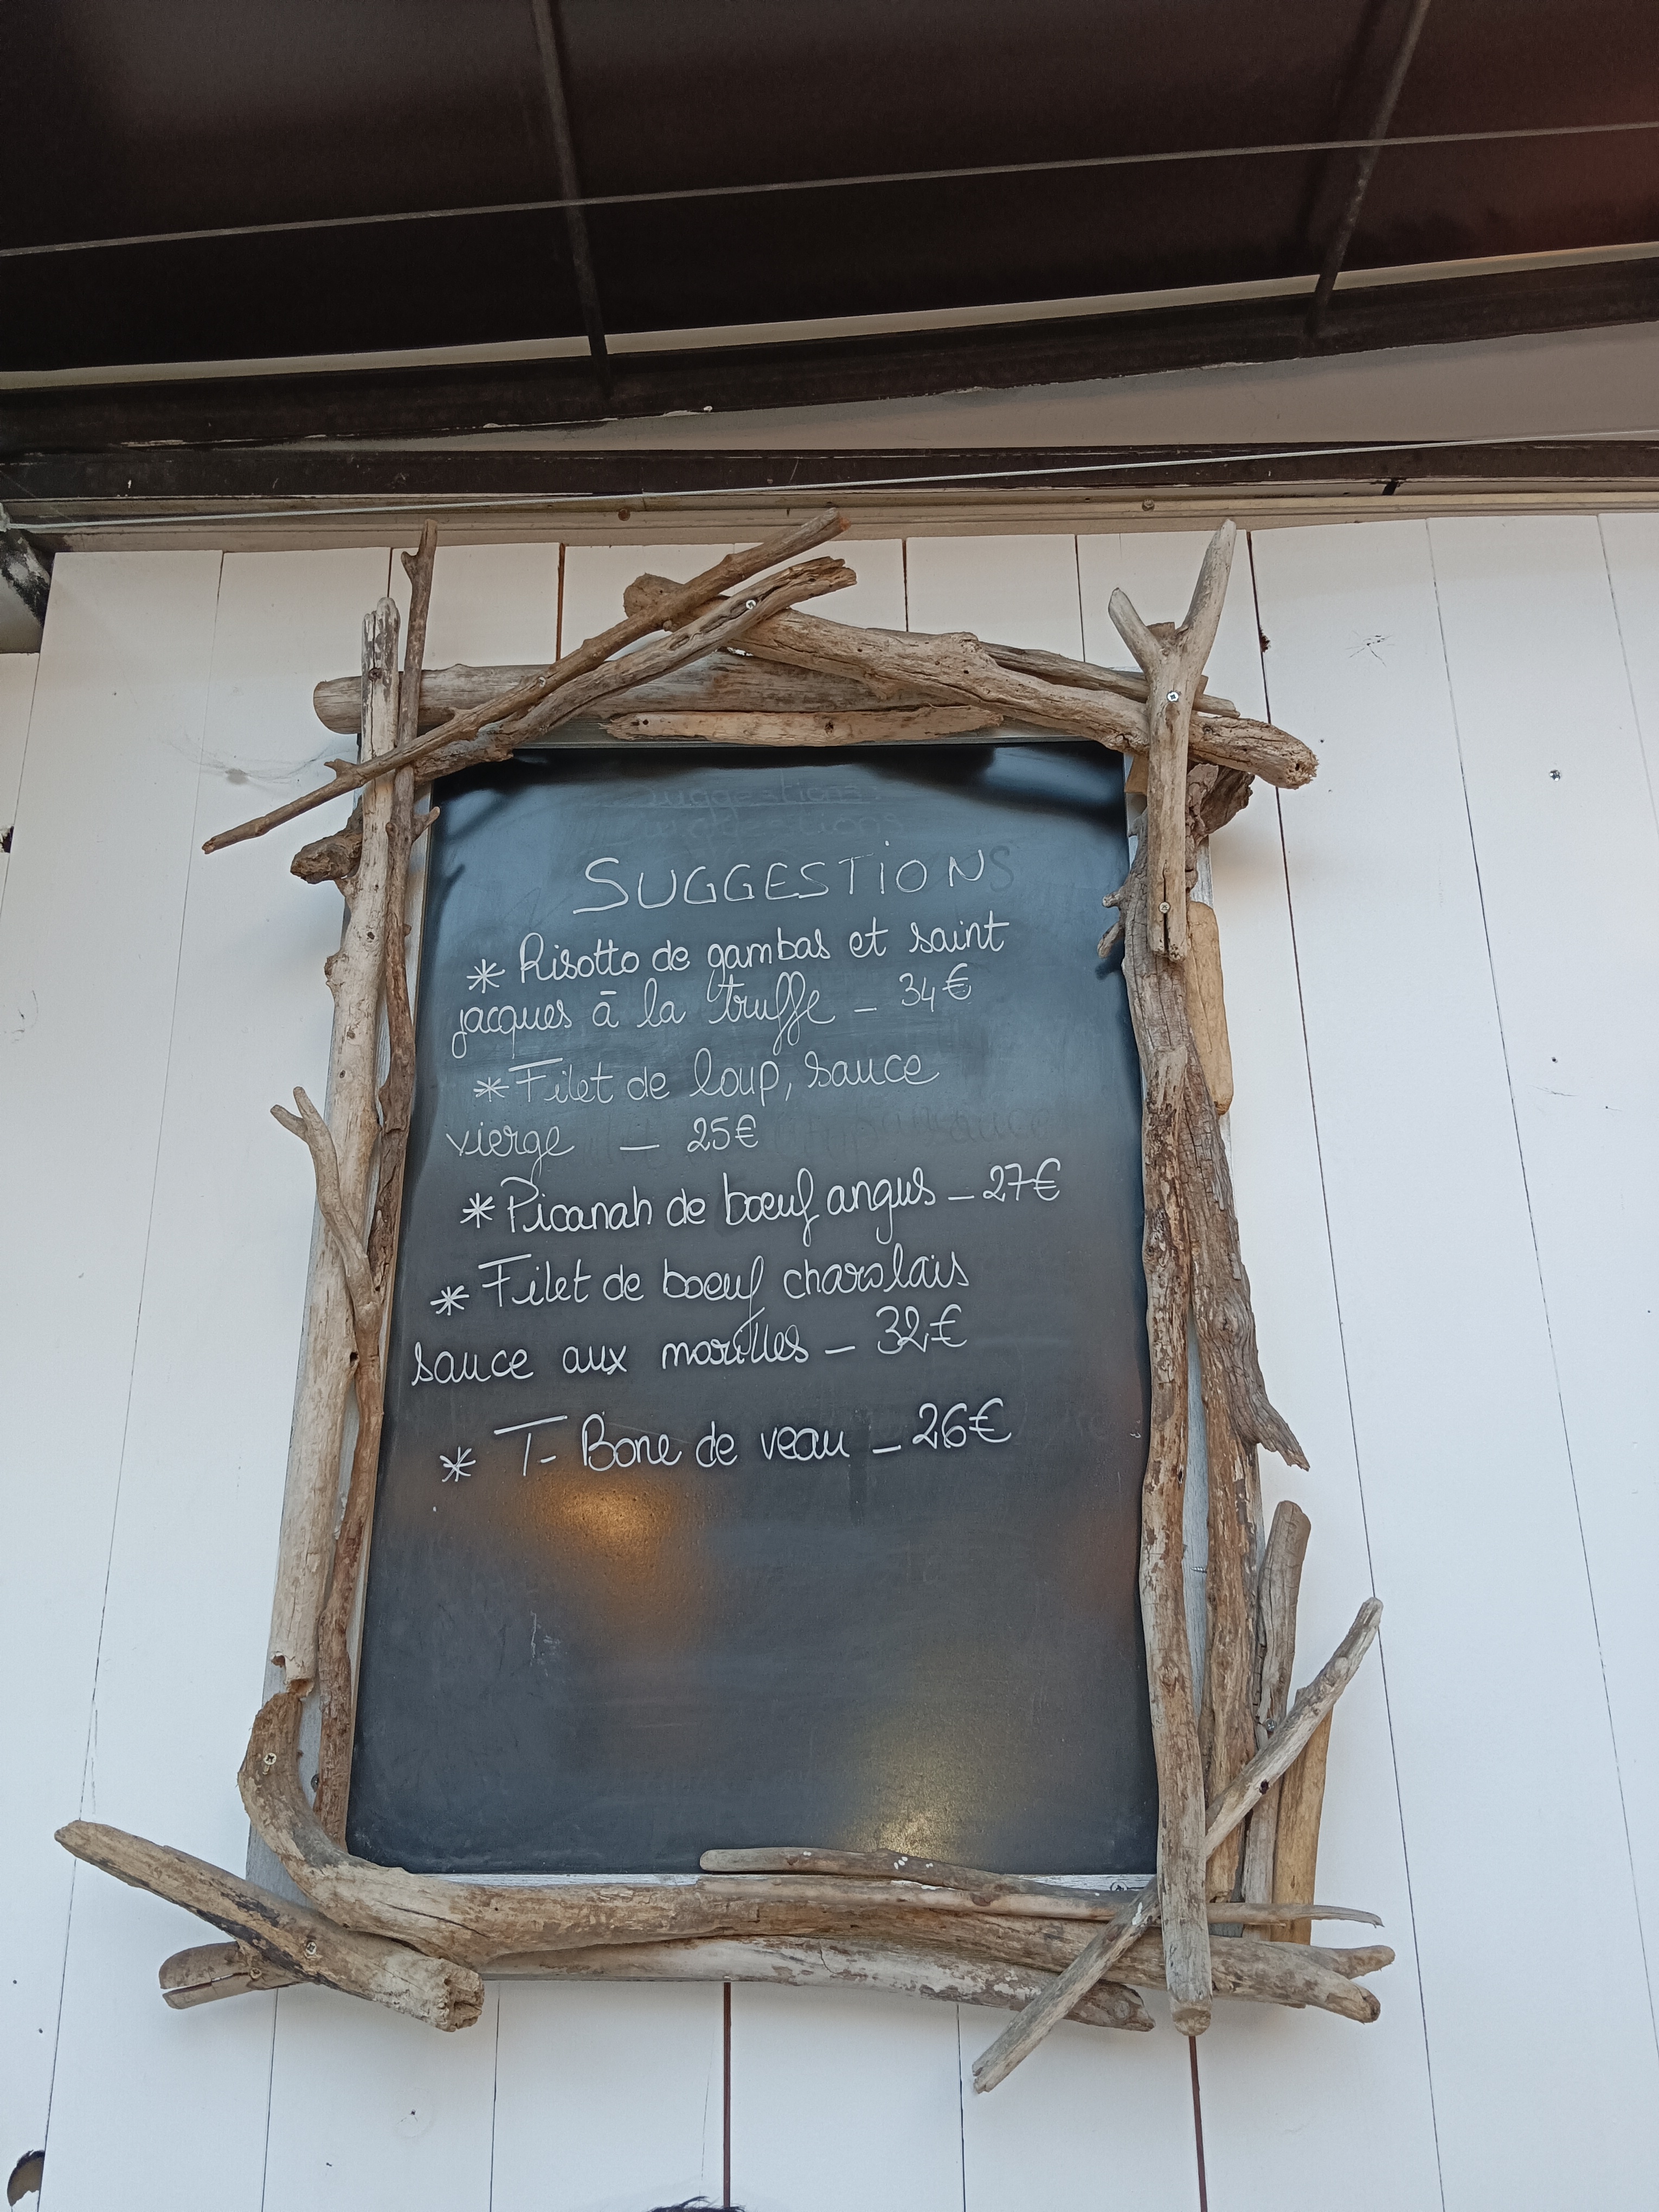 SUGGESTIONS
* Risotto de gambas et saint
jacques à la truffe - 34€
* Filet de loup, sauce
vierge - 25€
* Picanah de boeuf angus - 27€
* Filet de boeuf charolais
sauce aux morilles - 32€
* T-Bone de veau - 26€